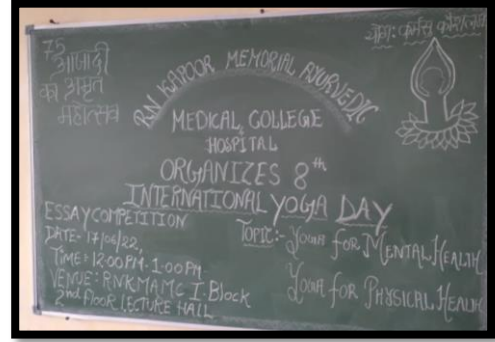 75
आजादी
का अमृत
महोत्सव
योग: कर्मसु कौशलम्
R.N KAPOOR MEMORIAL AYURVEDIC
MEDICAL COLLEGE
&
HOSPITAL
ORGANIZES 8th
INTERNATIONAL YOGA DAY
ESSAY COMPETITION
DATE- 17/06/22,
TIME: 12:00PM- 1:00PM
VENUE: RNKMAMC I-Block
2nd Floor LECTURE HALL
TOPIC:- YOGA FOR MENTAL HEALTH
YOGA FOR PHYSICAL HEALTH